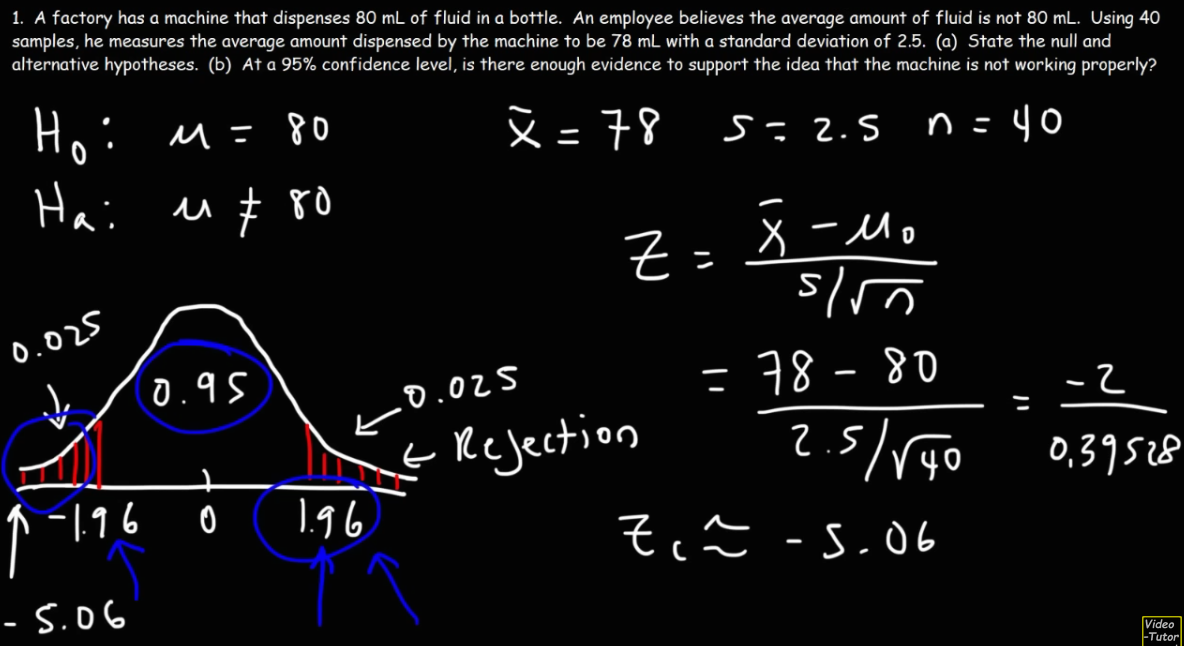 1. A factory has a machine that dispenses 80 mL of fluid in a bottle. An employee believes the average amount of fluid is not 80 mL. Using 40
samples, he measures the average amount dispensed by the machine to be 78 mL with a standard deviation of 2.5. (a) State the null and
alternative hypotheses. (b) At a 95% confidence level, is there enough evidence to support the idea that the machine is not working properly?
H₀: μ = 80
x̄ = 78 s = 2.5 n = 40
Ha: μ ≠ 80
Z = (x̄ - μ₀) / (s/√n)
= (78 - 80) / (2.5/√40) = -2 / 0.39528
Zc ≈ -5.06
0.025
0.95
0.025
← Rejection
-1.96 0 1.96
-5.06
Video
-Tutor